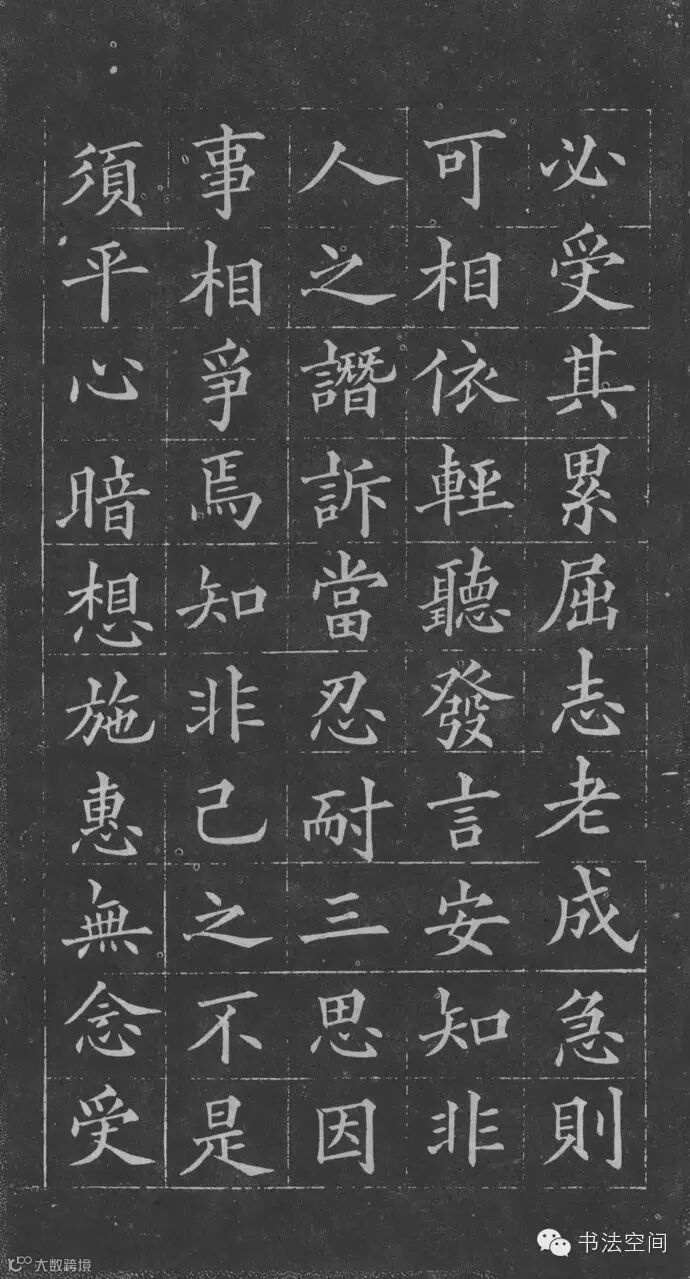 必受其累屈志老成急則
可相依輕聽發言安知非
人之譖訴當忍耐三思因
事相爭焉知非己之不是
須平心暗想施惠無念受
书法空间
大数跨境